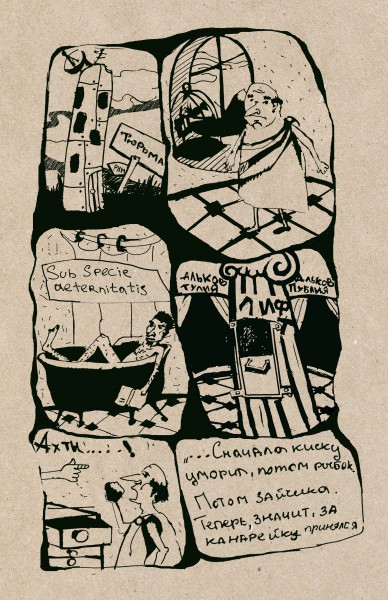 Тюрьма
Рим
Sub Specie
aeternitatis
Альков
Туллия
Альков
Публия
Лифт
Ахти...!
"...Сначала киску
уморит, потом рыбок.
Потом зайчика.
Теперь, значит, за
канарейку принялся